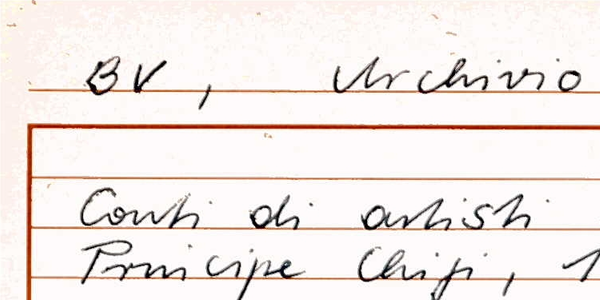 BV, Archivio
Conti di artisti
Principe Chigi, 1